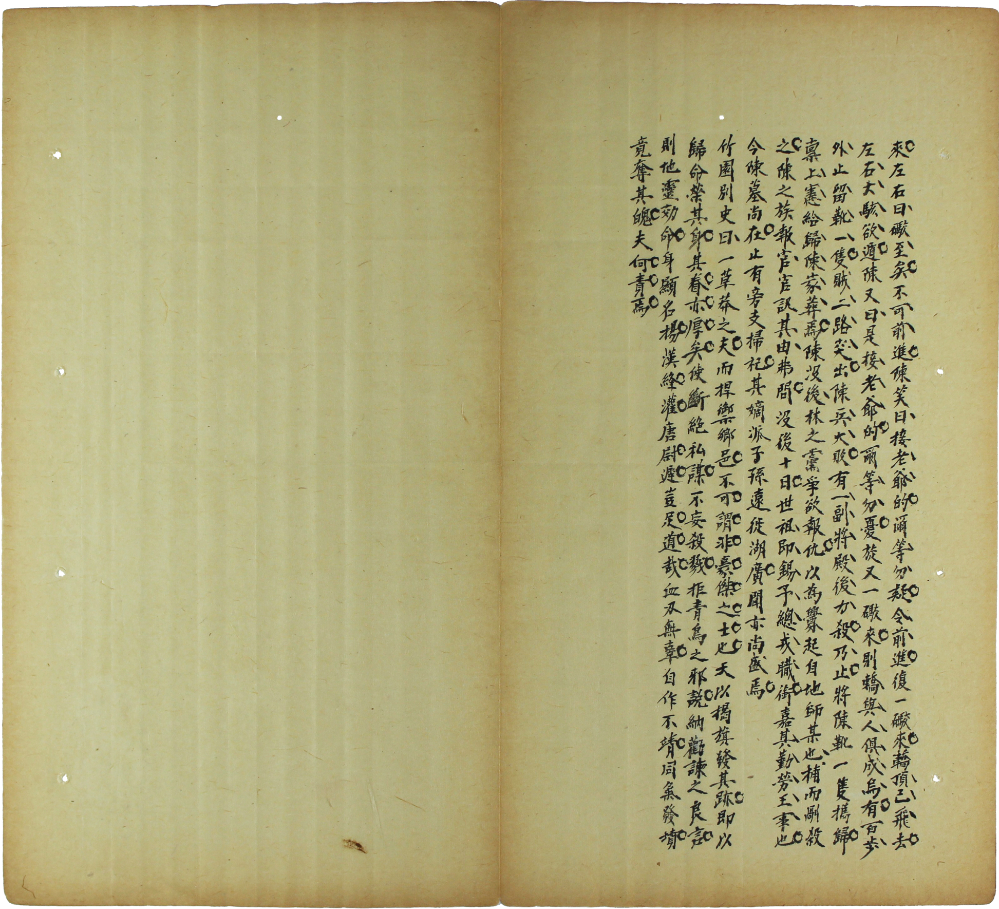 來左右曰礮至矣不可前進陳笑曰接老爺的爾等勿疑令前進復一礮來轎頂已飛去
左右大駭欲遁陳又曰是接老爺的爾等勿憂旋又一礮來則轎與人俱成烏有百步
外止留靴一隻賊二路突出陳兵大敗有一副將殿後力殺乃止將陳靴一隻携歸
稟上憲給歸陳家葬焉陳沒後林之黨爭欲報仇以為釁起自地師某也捕而剮殺
之陳之族報官官訊其由弗問沒後十日世祖即錫予總戎職銜嘉其勤勞王事也
今陳墓尚在止有旁支掃祀其嫡派子孫遠徙湖廣聞亦尚盛焉
竹園別史曰一草莽之夫而捍禦鄉邑不可謂非豪傑之士也天以揭旗發其跡即以
歸命榮其身其眷亦厚矣使斷絕私謀不妄殺戮拒青烏之邪說納勸諫之良言
則地靈効命身顯名揚漢絳灌唐尉遲豈足道哉血刃無辜自作不靖同氣發墳
竟奪其魄夫何責焉